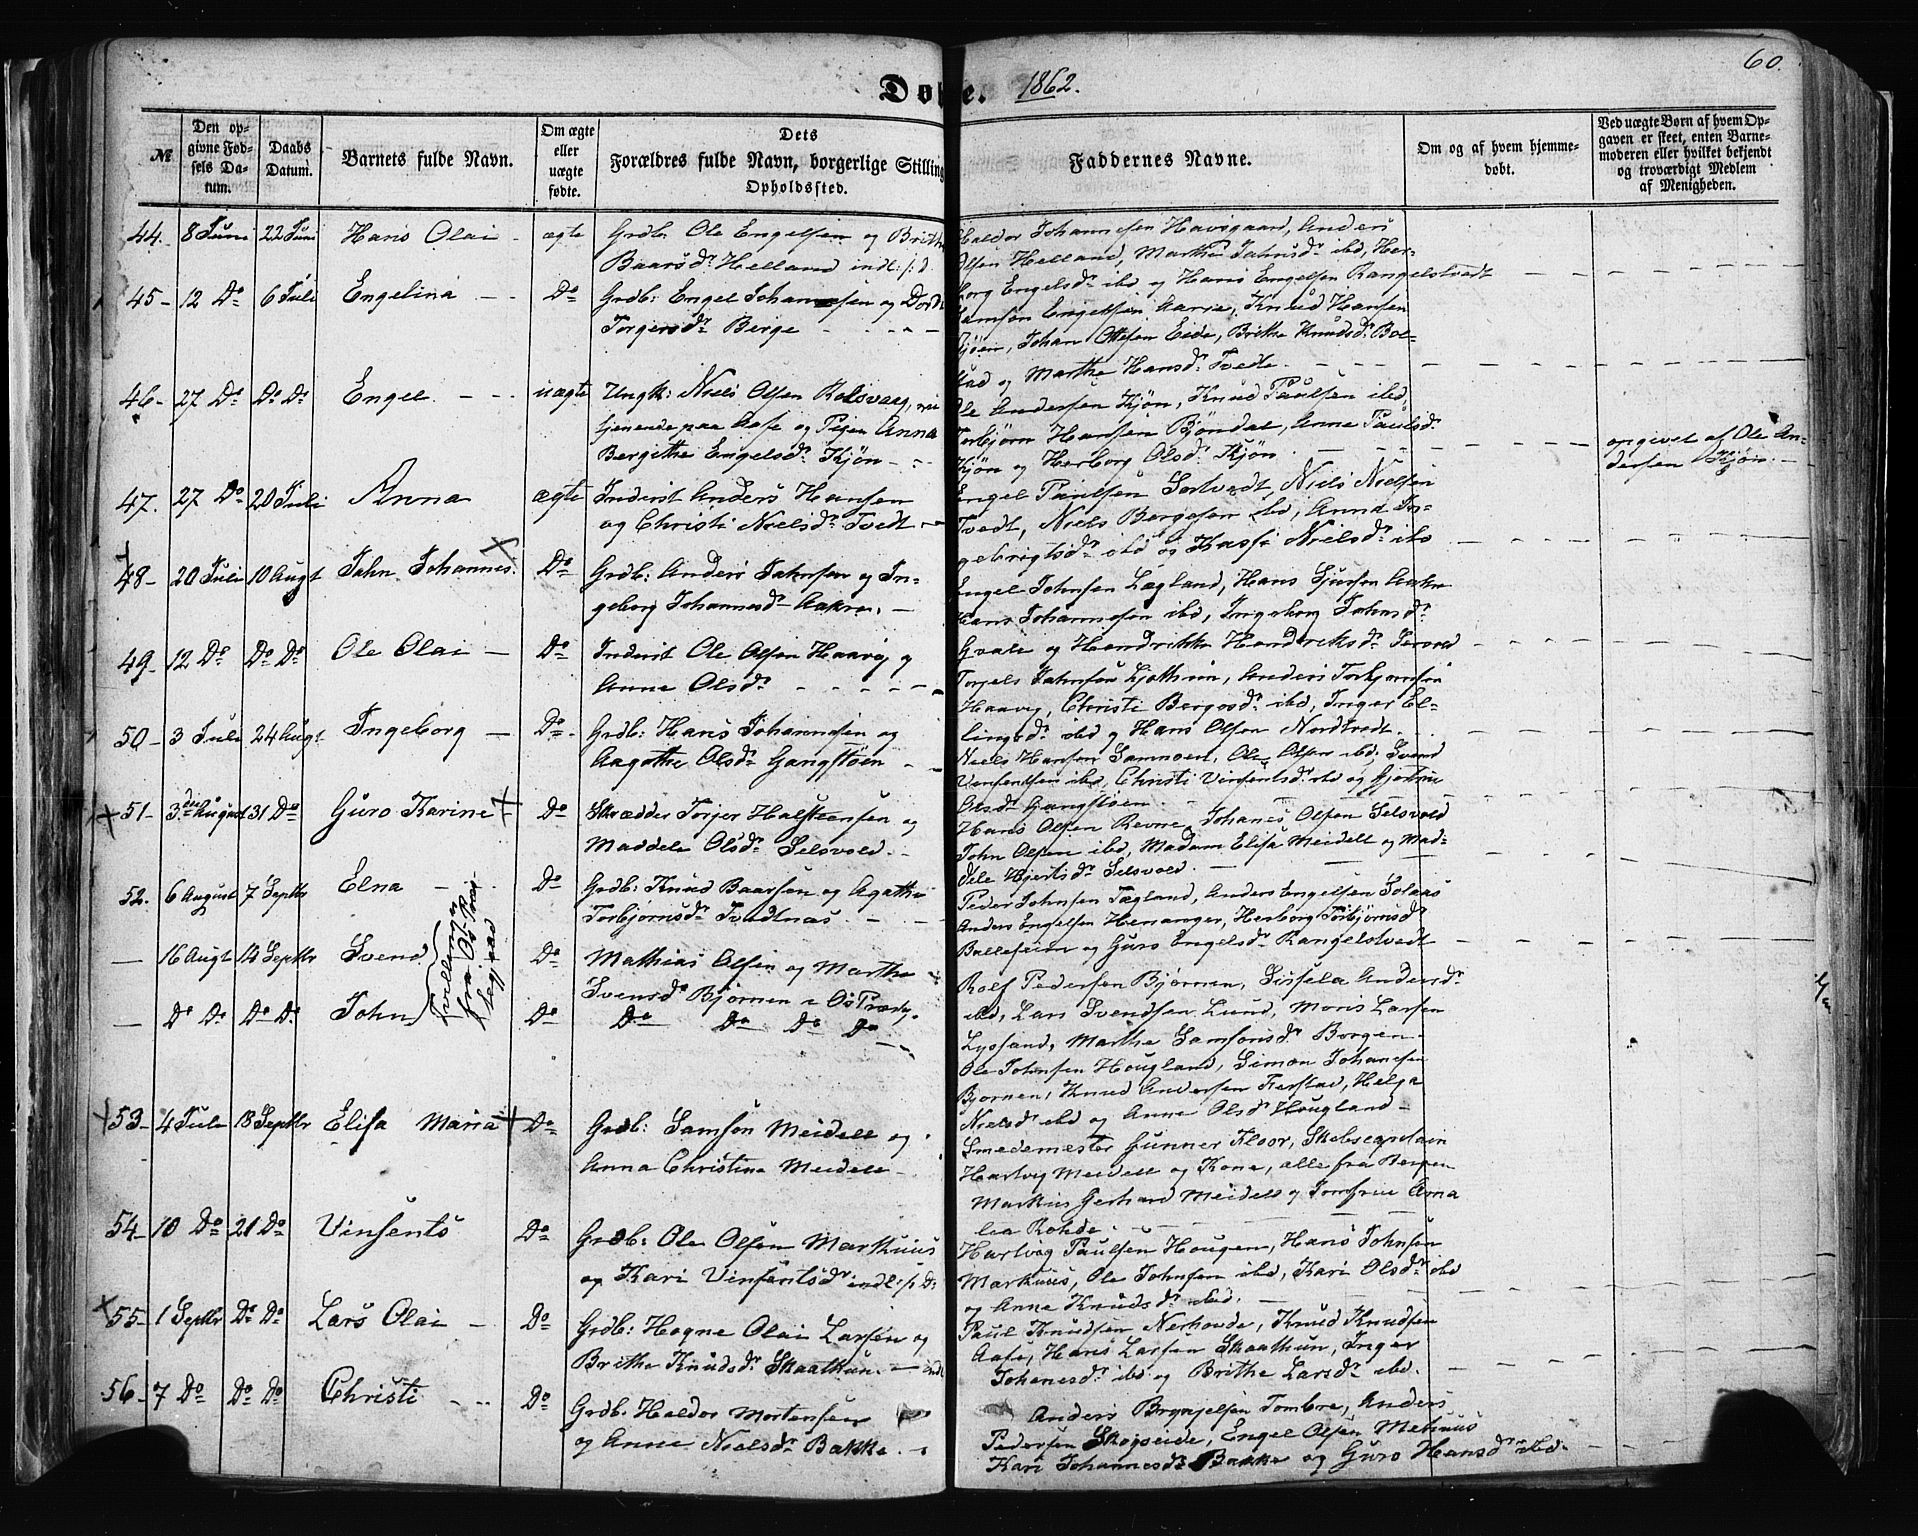 60.
Døbte. 1862.
№
Den opgivne Fødsels Datum.
Daabs Datum.
Barnets fulde Navn.
Om ægte eller uægte fødte.
Dets
Forældres fulde Navn, borgerlige Stilling
Opholdssted.
Faddernes Navne.
Om og af hvem hjemmedøbt.
Ved uægte Børn af hvem Opgaven er skeet, enten Barnemoderen eller hvilket bekjendt og troværdigt Medlem af Menigheden.
44. 8 Juni 22 Juni Hans Olai - ægte
Grdb. Ole Engelsen og Brithe
Baarsdr Helland indl:
Haldor Johannesen Havsgaard, Anders
Olsen Helland, Martha Jahnsdr ibd, Her-
borg Engelsdr ibd og Hans Engelsen Rangelstvedt
45- 12 Do 6 Juli Engelina - - Do
Grdb: Engel Johannesen og Dorte
Torgersdr Berge
Samson Engelsen Aarse, Knud Hansen
Kjøen, Johan Ottesen Eide, Brithe Knudsdr Bol-
stad og Marthe Hansdr Tvedt.
46- 27 Do Do Do Engel. - - uægte
Ungk: Niels Olsen Rolsvaag,
tjenende paa Aase og Pigen Anna
Bergithe Engelsdr Kjøn -
Ole Andersen Kjøn, Knud Paulsen ibd,
Torbjørn Hansen Bjøndal, Anne Paulsdr
Kjøn og Herborg Olsdr Kjøn.
opgivet af Ole An-
dersen Kjøn. -
47. 27 Do 20 Juli Anna ægte
Inderst Anders Hansen
og Christi Nielsdr Tvedt -
Engel Paulsen Sortvedt, Niels Nielsen
Tvedt, Niels Børgesen ibd, Anna In-
gebrigtsdr ibd og Nielsdr ibd
48- 20 Juli 10 Augt Jahn Johannes. Do
Grdb: Anders Jahnsen og In-
geborg Johannesdr Aakre. -
Engel Johnsen Lægland, Hans Sjursen Aakre
Hans Johannesen ibd, Ingeborg Jahnsdr
49- 12 Do Do Do Ole Olai - Do
Inderst Ole Olsen Haavig og
Anne Olsdr
Gvale og Hendrikke Hendriksdr
Torgels Jahnsen, Anders Torbjørnsen
Haavig, Christi Børgesdr ibd, Inger El-
lingsdr ibd og Hans Olsen Nordtvedt.
50- 3 Juli 24 Augt Ingeborg - Do
Grdb: Hans Johannesen og
Aagathe Olsdr Gangstøen
Niels Hansen Samnøen, Ole Olsen ibd, Svend
Vinsentsen ibd, Christi Vinsentsdr ibd og
Olsdr Gangstøen
51- 3die August 31 Do Guro Karine Do
Skrædder Torger Halsteensen og
Maddele Olsdr Selsvold. -
Hans Olsen Revne, Johanes Olsen Selsvold
John Olsen ibd, Madam Elisa Meidell og Mad-
dele Hjertsdr Selsvold. -
52. 6 August 7 Septbr Elna - Do
Grdb: Knud Baarsen og Agathe
Torbjørnsdr Tvedtnæs.
Peder Johnsen Tægland, Anders Engelsen Solaas
Anders Engelsen Henanger, Herborg Torbjørnsdr
Balleseim og Guro Engelsdr Rangelstvedt
- 16 Augt 14 Septbr Svend Do
Tvillinger fra Os Præstegjæld
Mathias Olsen og Marthe
Svensdr Bjørnen i Os Præstg.
Rolf Pedersen Bjørnen, Sissela Andersdr
ibd, Lars Svendsen Lund, Mons Larsen
Lyssand, Marthe Samsonsdr Borgen-
- Do Do Do Do John Do
Do Do Do Do
Ole Johnsen Hougland, Simon Johanesen
Bjørnen, Knud Andersen Ferstad, Helga
Nielsdr ibd og Anne Olsdr Hougland -
53- 4 Juli 18 Septbr Elisa Maria Do
Grdb: Samson Meidell og
Anna Christine Meidell -
Smedemester Gunner Floor, Skibscaptain
Hartvig Meidell og Kone, alle fra Bergen
Markus Gerhard Meidell og Jomfrue Ama
lia Rohde.
54- 10 Do 21 Do Vinsents Do
Grdb: Ole Olsen Markhuus
og Kari Vinsentsdr indl:
Hartvig Paulsen Hougen, Hans Johnsen
Markhuus, Ole Johnsen ibd, Kari Olsdr ibd
og Anne Knudsdr ibid.
55- 1 Septbr Do Do Lars Olai - Do
Grdb: Hogne Olai Larsen og
Brithe Knudsdr Skaathun. -
Paul Knudsen Nerhovde, Knud Knudsen
Aase, Hans Larsen Skaathun, Inger
Johanesdr ibd og Brithe Larsdr ibd.
56- 7 Do Do Do Christi - Do
Grdb. Haldor Mortensen
og Anne Nielsdr Bakke. -
Anders Brynjelsen Tombre, Anders
Pedersen Skogseide, Engel Olsen Mehuus
Kari Johannesdr Bakke og Guro Hansdr ibd.